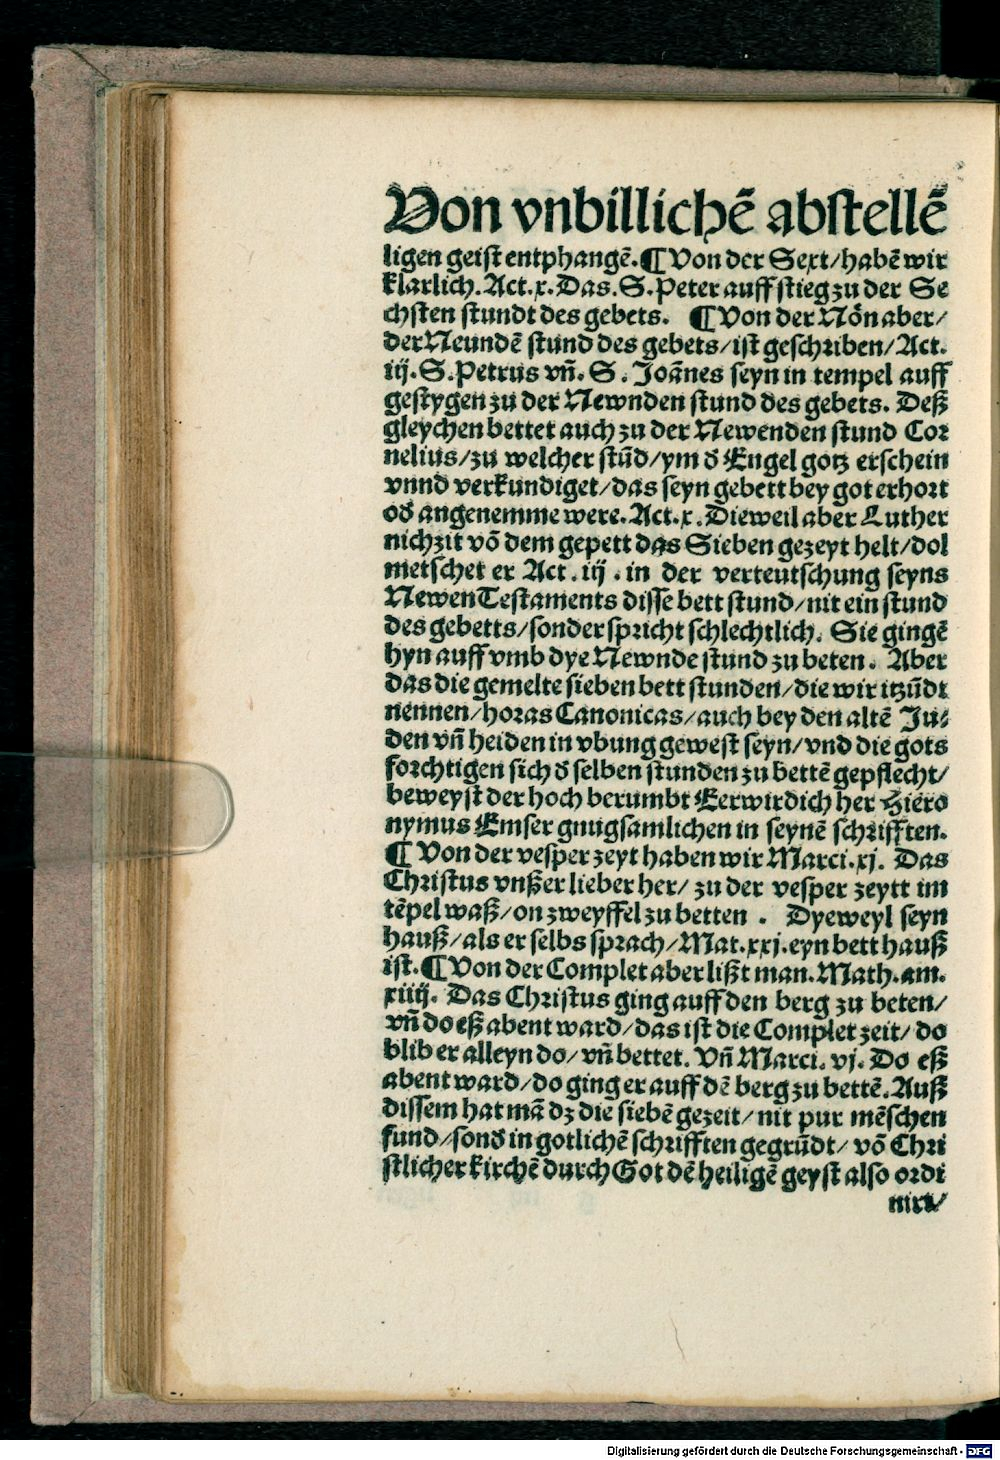 Von vnbillichē abstellē
ligen geist entphangē. ¶ Von der Sext/habē wir
klarlich. Act. x. Das. S. Peter auff stieg zu der Se
chsten stundt des gebets. ¶ Von der Nōn aber/
der Neundē stund des gebets/ist geschriben/Act.
iij. S. Petrus vn̄. S. Joānes seyn in tempel auff
gestygen zu der Newnden stund des gebets. Deß
gleychen bettet auch zu der Newenden stund Cor
nelius/zu welcher stūd/ym đ Engel gotz erschein
vnnd verkundiget/das seyn gebett bey got erhort
ođ angenemme were. Act. x. Dieweil aber Luther
nichzit vō dem gepett das Sieben gezeyt helt/dol
metschet er Act. iij. in der verteutschung seyns
Newen Testaments disse bett stund/nit ein stund
des gebetts/sonder spricht schlechtlich. Sie gingē
hyn auff vmb dye Newnde stund zu beten. Aber
das die gemelte sieben bett stunden/die wir itzūdt
nennen/horas Canonicas/auch bey den altē Ju⸗
den vn̄ heiden in vbung gewest seyn/vnd die gots
forchtigen sich đ selben stunden zu bettē gepflecht/
beweyst der hoch berumbt Eerwirdich her Hiero
nymus Emser gnugsamlichen in seynē schrifften.
¶ Von der vesper zeyt haben wir Marci. xj. Das
Christus vnßer lieber her/ zu der vesper zeytt im
tēpel waß/on zweyffel zu betten . Dyeweyl seyn
hauß/als er selbs sprach/Mat. xxj. eyn bett hauß
ist. ¶ Von der Complet aber lißt man. Math. am.
xiiij. Das Christus ging auff den berg zu beten/
vn̄ do eß abent ward/das ist die Complet zeit/ do
blib er alleyn do/ vn̄ bettet. Vn̄ Marci. vj. Do eß
abent ward/do ging er auff dē berg zu bettē. Auß
dissem hat mā dz die siebē gezeit/nit pur mēschen
fund/sonđ in gotlichē schrifften gegrūdt/ vō Chri
stlicher kirchē durch Got dē heiligē geyst also ordi
nirt/
Digitalisierung gefördert durch die Deutsche Forschungsgemeinschaft - DFG